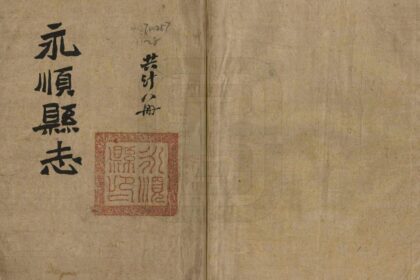 永順縣志
共計八冊
永順縣印